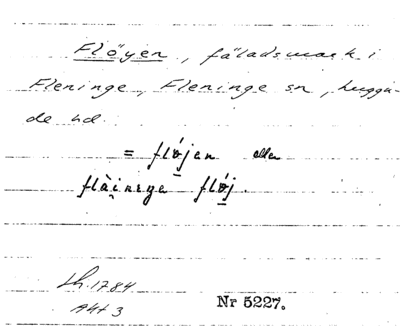 Flöyen, fäladsmark i
Fleninge, Fleninge sn, Luggu-
de hd.
= fløjen eller
flàinṣge fløj.
Lh. 1784
Akt 3
Nr 5227.